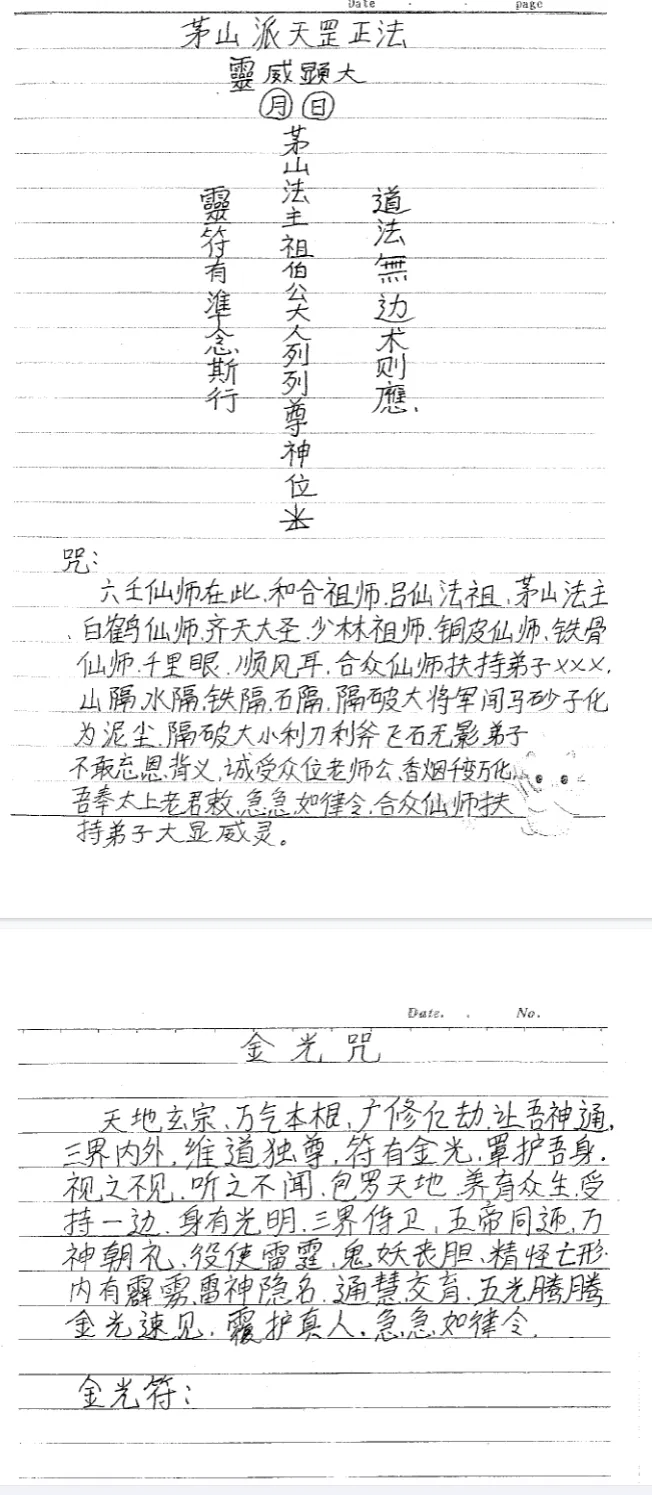 Date
page
茅山派天罡正法
靈威顕大
月 日
茅山法主祖伯公大人列列尊神位
道法無边术则應.
靈符有準念斯行
咒:
六壬仙师在此.和合祖师.吕仙法祖,茅山法主
白鹤仙师.齐天大圣.少林祖师.铜皮仙师、铁骨
仙师.千里眼.顺风耳,合众仙师扶持弟子XXX,
山隔.水隔.铁隔.石隔.隔破大将军间马砂子化
为泥尘.隔破大小利刀利斧飞石无影弟子
不敢忘恩背义,诚受众位老师公、香烟千变万化.
吾奉太上老君敕.急急如律令.合众仙师扶
持弟子大显威灵。
Date. . No.
金光咒
天地玄宗、万气本根,广修亿劫.让吾神通,
三界内外,维道独尊,符有金光,罩护吾身.
视之不见.听之不闻.包罗天地 养育众生,受
持一边.身有光明.三界侍卫,五帝同迊,万
神朝礼、役使雷霆,鬼妖丧胆、精怪亡形.
内有霹雳,雷神隐名.通慧交育.五光腾腾
金光速见.覆护真人.急急如律令.
金光符: